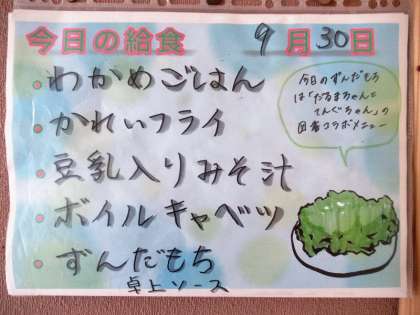 今日の給食 9月30日
・わかめごはん
・かれいフライ
・豆乳入りみそ汁
・ボイルキャベツ
・ずんだもち
卓上ソース
今日のずんだもち
は「だるまちゃんと
てんぐちゃん」の
図書コラボメニュー